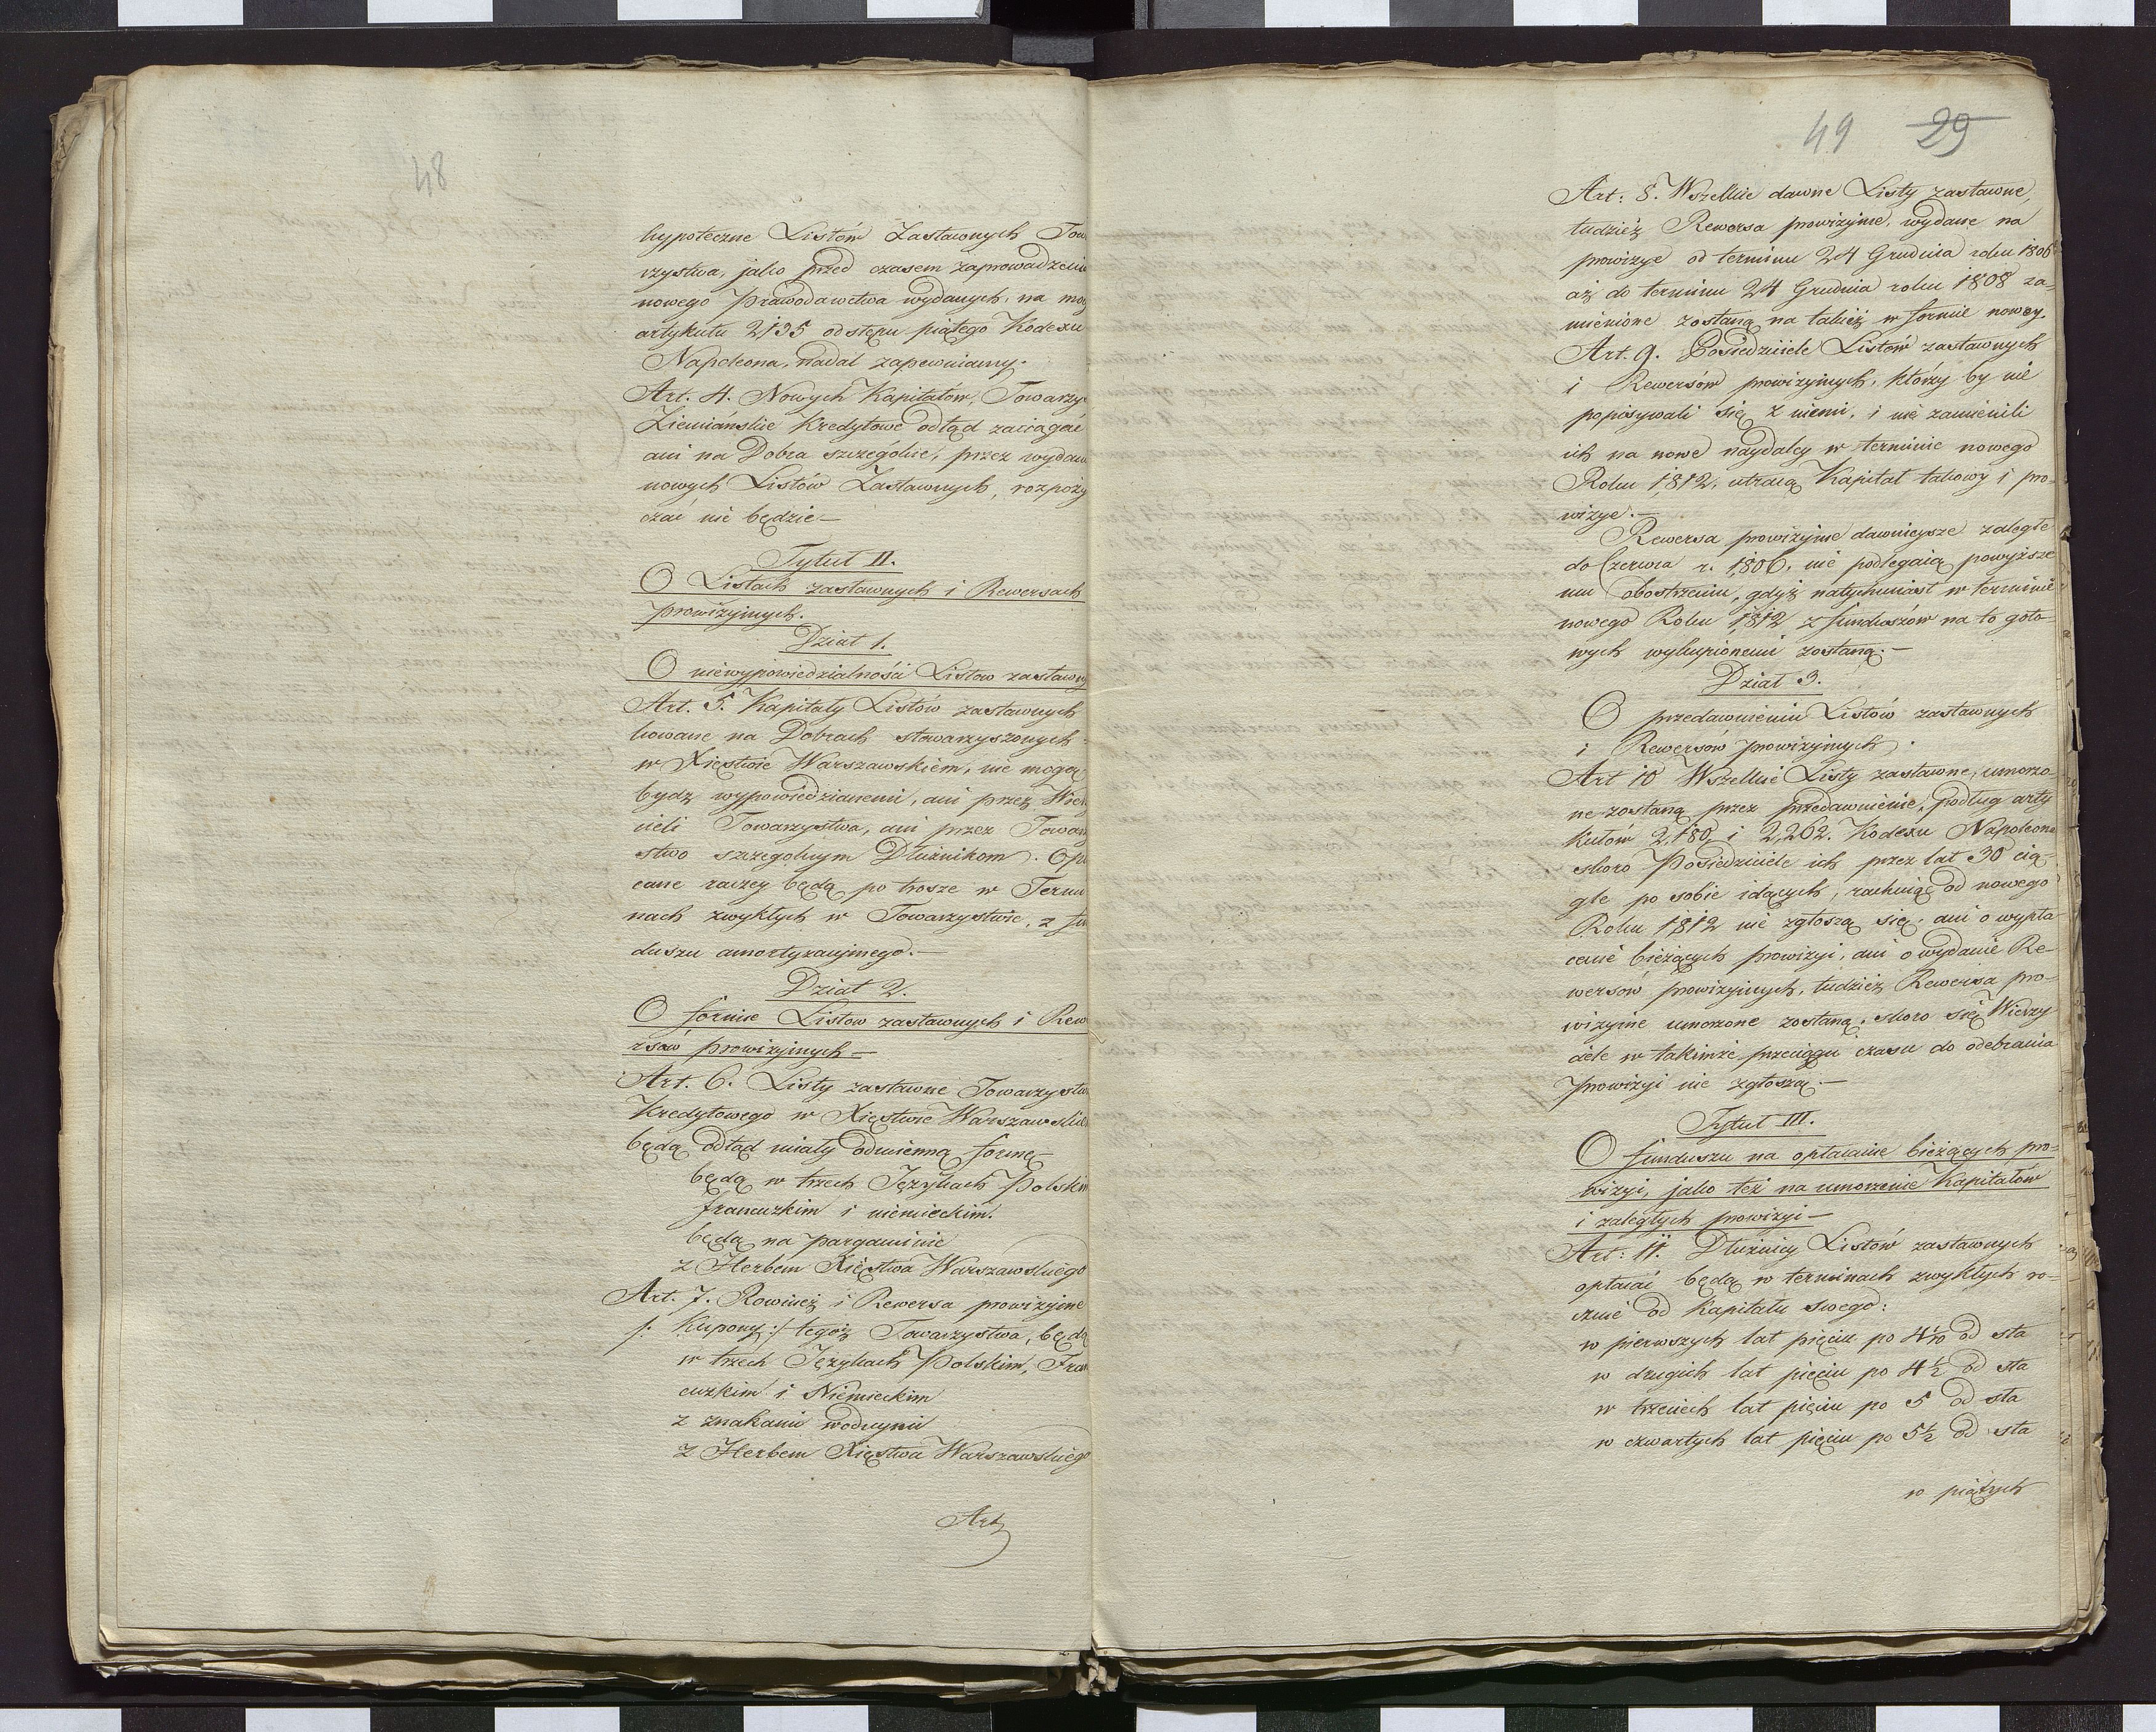 48
hypoteczne Listów Zastawnych Tow
rzystwa, jako przed czasem zaprowadzenia
nowego prawodawctwa wydanych, na moc
artykułu 2,135 odstępu piątego Kodexu
Napoleona, nadal zapewniamy.
Art. 4. Nowych Kapitałów, Towarzy
Ziemiańskie Kredytowe odtąd zaciągać
ani na Dobra szczególne, przez wydaw
nowych Listów Zastawnych, rozpoży
czać nie będzie —
Tytuł II.
O Listach zastawnych i Rewersach
prowizyinych.
Dział 1.
O niewypowiedzialności Listow zastawny
Art. 5. Kapitały Listów zastawnych
kowane na Dobrach stowarzyszonych
w Xięstwie Warszawskiem, nie mogą
bydz wypowiedzianemi, ani przez Wie
cieli Towarzystwa, ani przez Towar
stwo szczegolnym Dłużnikom. Opł
cane raczey będą po trosze w Termi
nach zwykłych w Towarzystwie, z fu
duszu amortyzacyjnego. —
Dział 2.
O formie Listow zastawnych i Rew
rsów prowizyinych —
Art. 6. Listy zastawne Towarzystw
Kredytowego w Xięstwie Warszawskie
będą odtąd miały odmienną formę
będą w trzech Językach Polskim
francuzkim i niemieckim.
będą na pargaminie
z Herbem Xięstwa Warszawskiego
Art. 7. Rownież i Rewersa prowizyine
/: Kupony :/ tegoż Towarzystwa, będą
w trzech Językach Polskim, Fran
cuzkim i Niemieckim
z znakami wodnymi
z Herbem Xięstwa Warszawskiego
Art
49 29
Art: 8. Wszelkie dawne Listy zastawne,
tudzież Rewersa prowizyine, wydane na
prowizye od terminu 24 Grudnia roku 1806
aż do terminu 24 Grudnia roku 1808 za=
mienione zostaną na takież w formie nowey.
Art. 9. Posiedziciele Listów zastawnych
i Rewersów prowizyinych, którzy by nie
popisywali się z niemi, i nie zamienili
ich na nowe naydaley w terminie nowego
Roku 1,812, utracą Kapitał takowy i pro=
wizye. —
Rewersa prowizyine dawnieysze zaległe
do Czerwca r. 1,806, nie podlegaią powyższe
mu obostrzeniu, gdyż natychmiast w terminie
nowego Roku 1,812 z funduszów na to goto=
wych wykupionemi zostaną. —
Dział 3.
O przedawnieniu Listów zastawnych
i Rewersów prowizyinych.
Art 10 Wszelkie Listy zastawne, umorzo=
ne zostaną przez przedawnienie, podług arty
kułów 2,180 i 2,262. Kodexu Napoleona
skoro Posiedziciele ich przez lat 30 cią=
gle po sobie idących, rachuiąc od nowego
Roku 1,812 nie zgłoszą się, ani o wypła
cenie bieżących prowizyi, ani o wydanie Re=
wersów prowizyinych, tudzież Rewersa pro=
wizyine umorzone zostaną, skoro się Wierzy
ciele w takimże przeciągu czasu do odebrania
prowizyi nie zgłoszą. —
Tytuł III.
O funduszu na opłacanie bieżących pro=
wizyi, jako też na umorzenie Kapitałów
i zaległych prowizyi —
Art: 11. Dłużnicy Listów zastawnych
opłacać będą w terminach zwykłych ro=
cznie od Kapitału swego:
w pierwszych lat pięciu po 4 1/10 od sta
w drugich lat pięciu po 4 1/2 od sta
w trzecich lat pięciu po 5 od sta
w czwartych lat pięciu po 5 1/2 od sta
w piątych